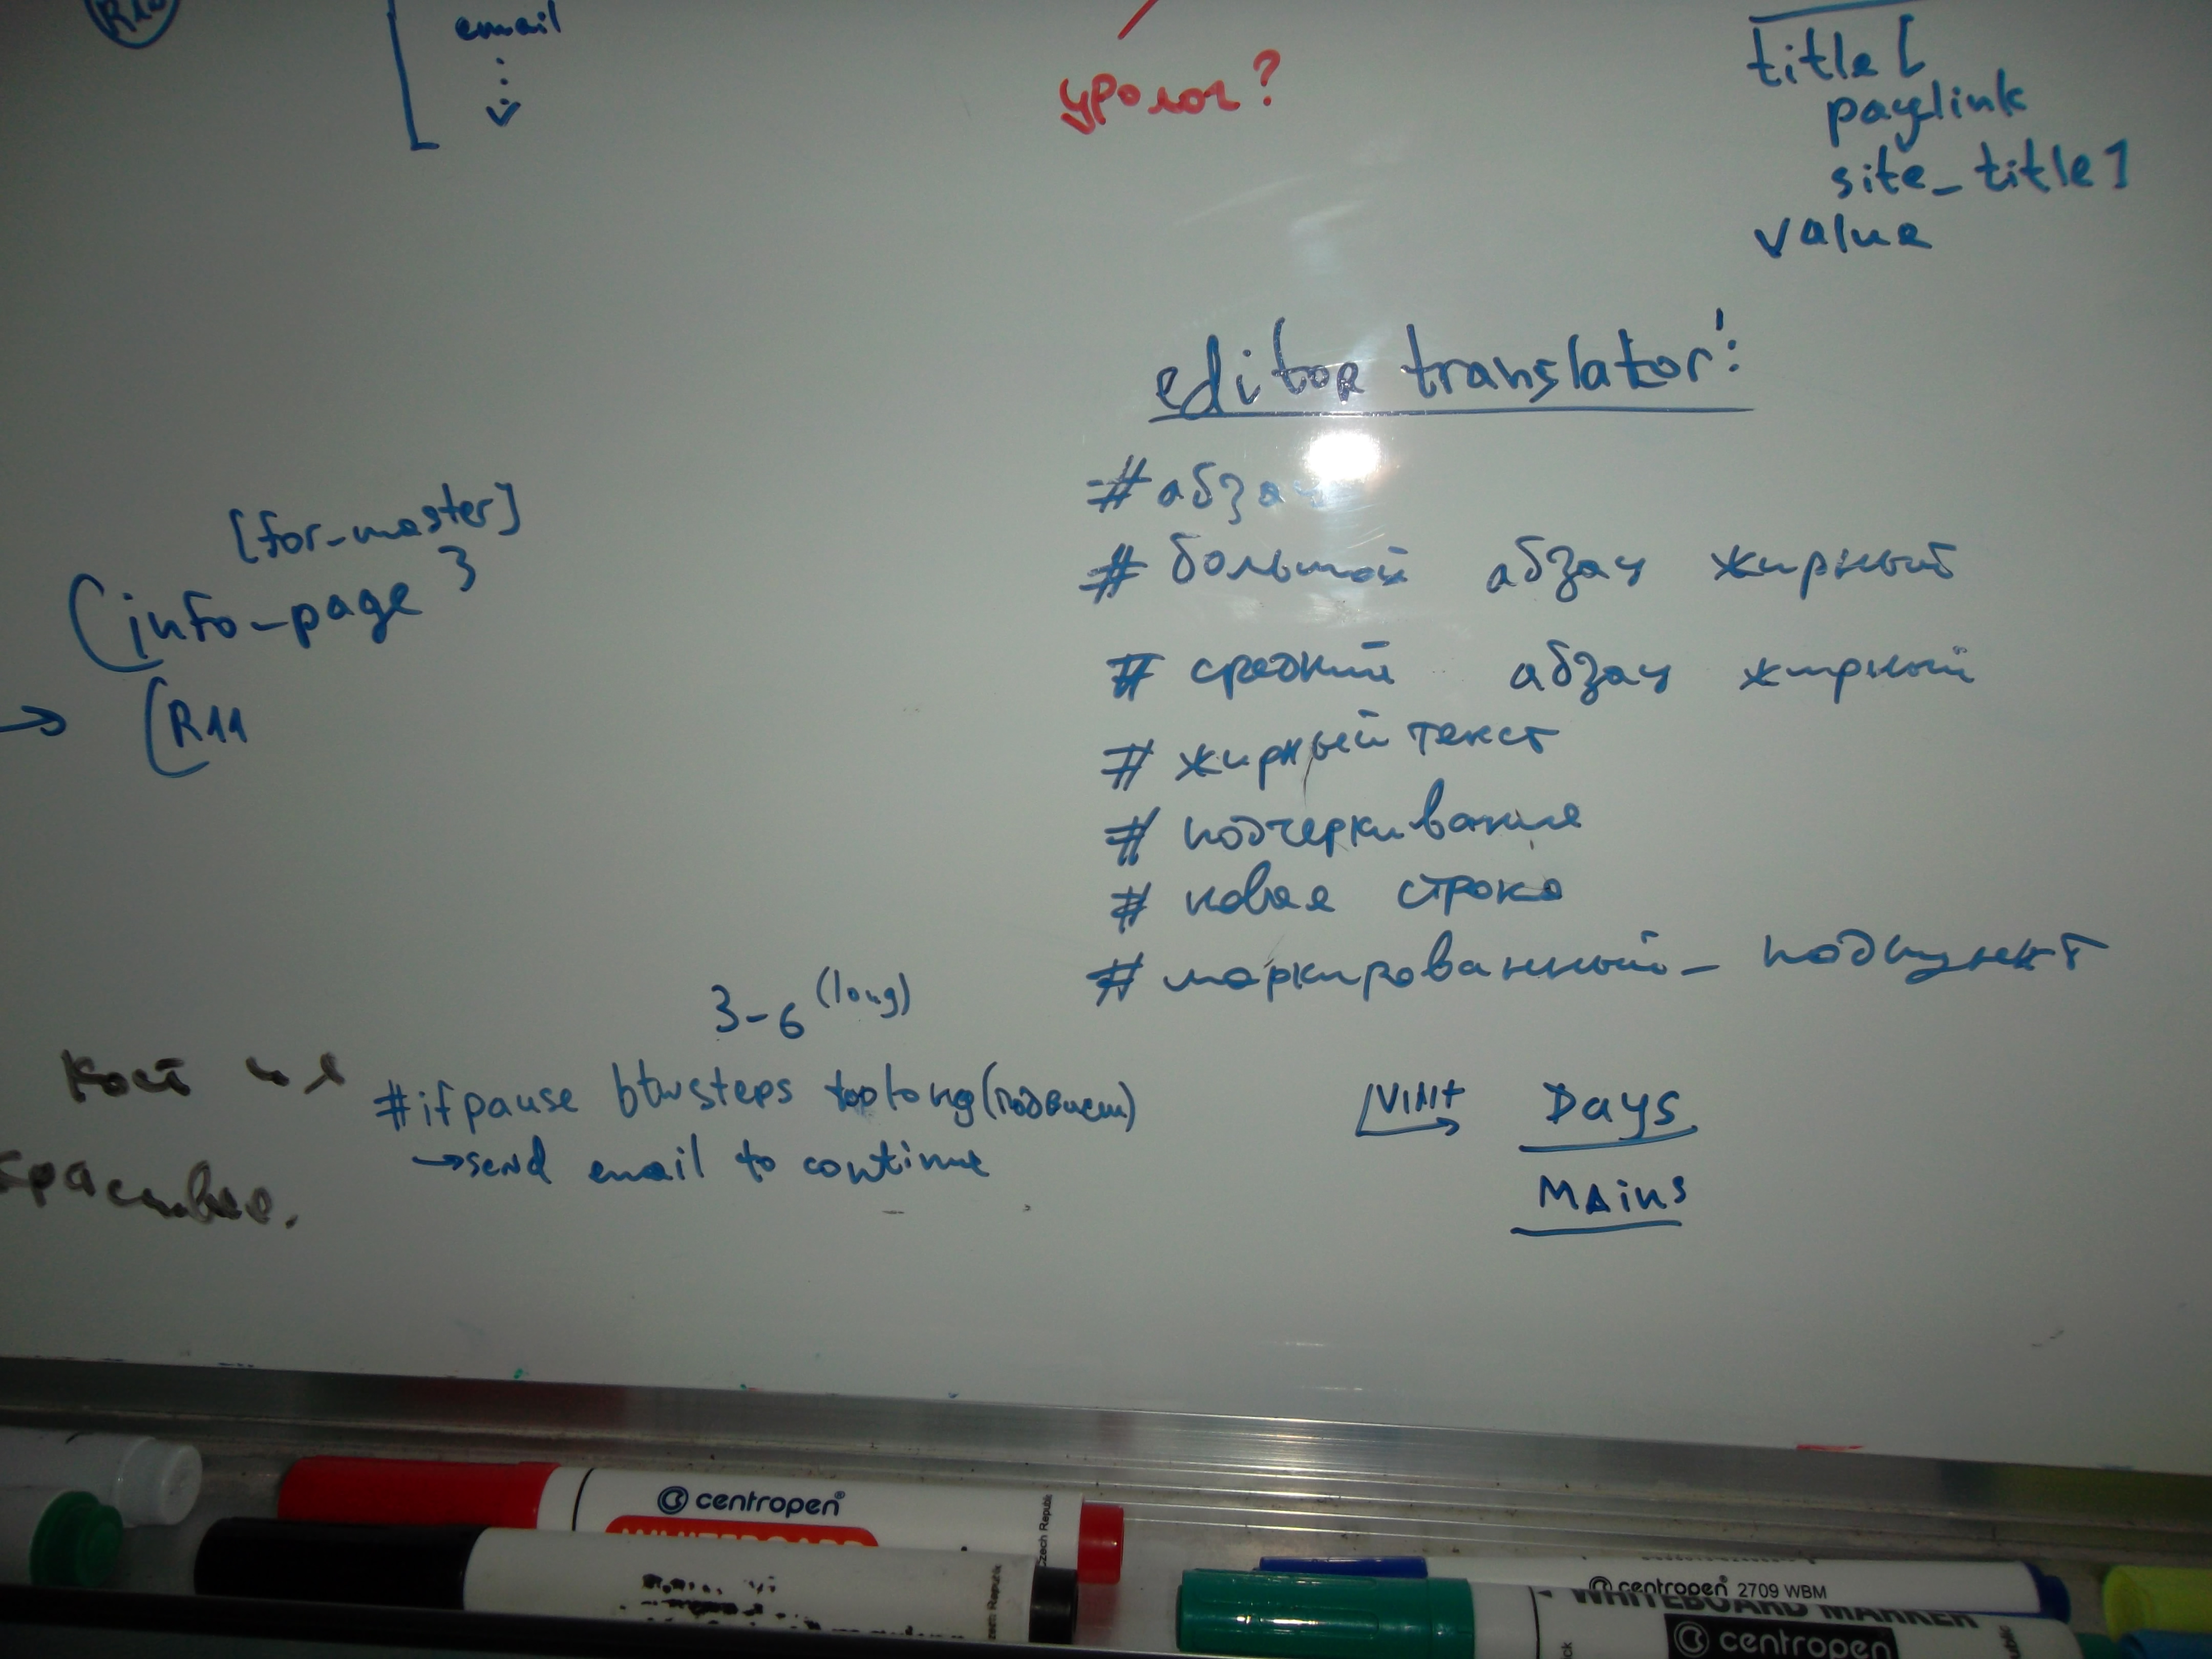 email
уролог?
title [
paylink
site_title]
value
editor translator:
# абзац
# большой абзац жирный
# средний абзац жирный
# жирный текст
# подчеркивание
# новая строка
# маркированный - подпункт
[for-master]
info-page
R11
3-6 (long)
#if pause btw steps too long (подвисш)
→ send email to continue
Days
MAins
centropen
WHITEBOARD
Czech Republic
centropen 2709 WBM
WHITEBOARD MARKER
centropen